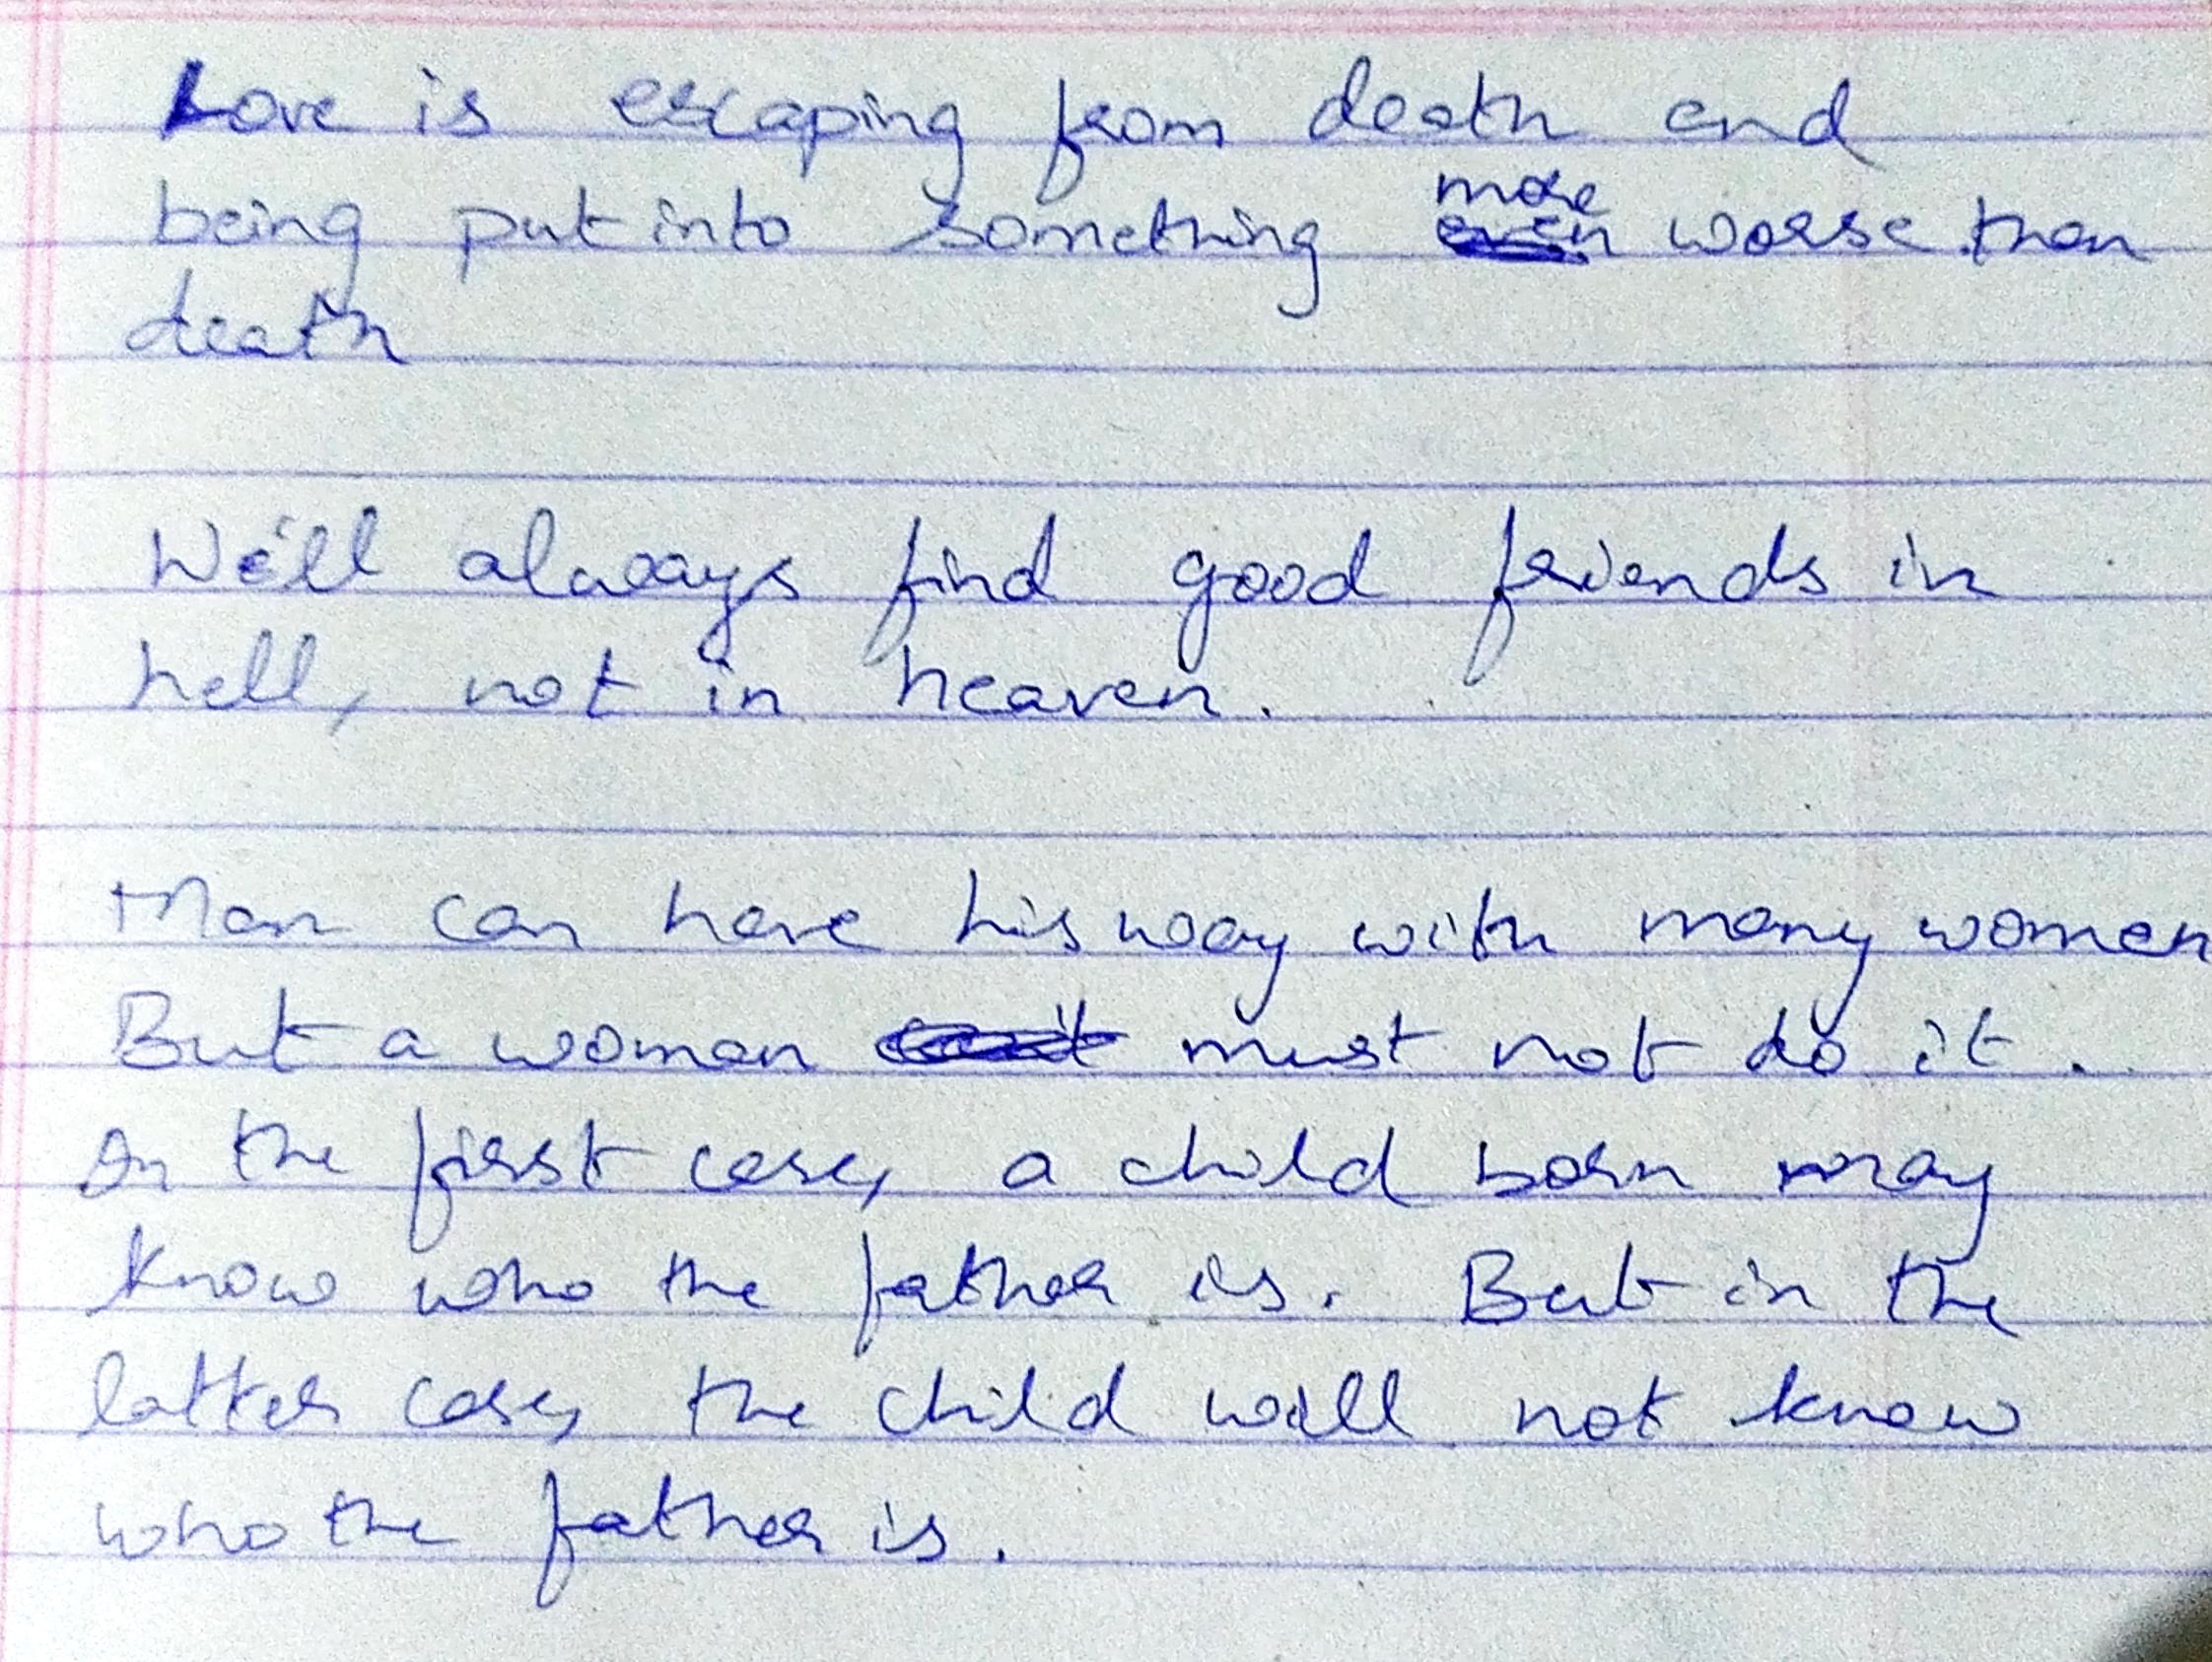 Love is escaping from death and
being put into something more worse than
death
We'll always find good friends in
hell, not in heaven.
Man can have his way with many women
But a woman must not do it.
In the first case, a child born may
know who the father is. But in the
latter case, the child will not know
who the father is.